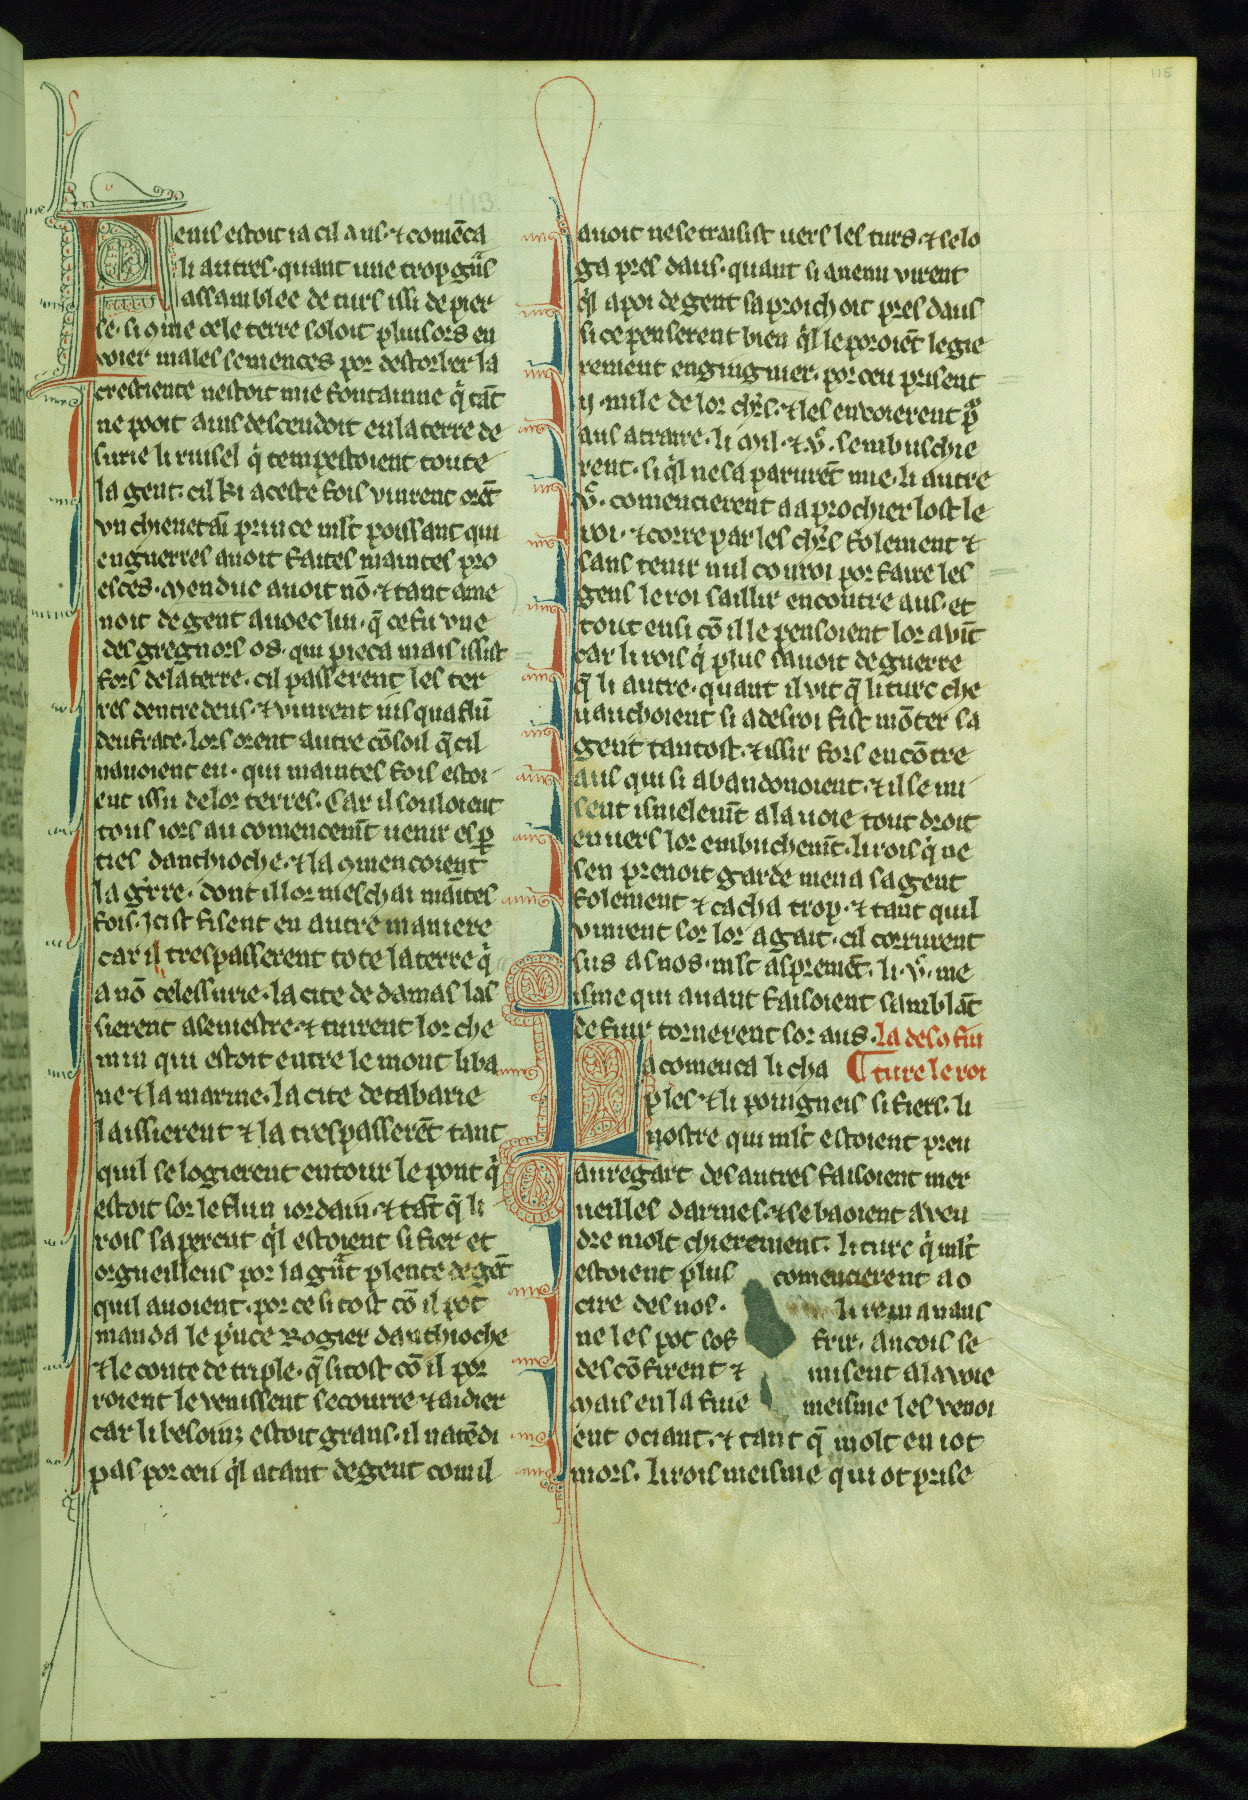 115
1113
Fenis estoit ia cil ans· ⁊ comēca
li autres· quant une trop gᵃ̄s
assamblee de turs issi de pier
se· si ꝯme cele terre soloit plusors en
voier males semences por destorber la
crestiente nestoit mie fontainne q̇ tāt
ne pooit auis descendoit en la terre de
surie li ruisel q̇ tempestoient toute
la gent· cil ki aceste fois vinrent orēt
vn chieuetaī prince mlt̄ poissant qui
en guerres auoit faites maintes pro
esces· Menduc auoit nō· ⁊ tant ame
noit de gent auoec lui· q̄ ce fu vne
des gregnors os· qui pieca mais issist
fors de la terre· cil passerent les ter
res dentre deus· ⁊ vinrent iusqua flū
deufrate· lors orent autre cōsoil q̄ cil
nauoient eu· qui maintes fois estoi
ent issu de lor terres· Car il souloient
tous iors au comencemt̄ uenir es ꝑ
ties danthioche· ⁊ la ꝯmencoient
la gr̄re· dont il lor meschai maītes
fois· Icist fisent en autre maniere
car il trespasserent tote la terre q̇
a nō celessurie· la cite de damas las
sierent asenestre· ⁊ tinrent lor che
min qui estoit entre le mont liba
ne ⁊ la marine· la cite de tabarie
laissierent ⁊ la trespasserēt tant
quil se logierent entour le pont q̇
estoit sor le flun iordain· ⁊ tāt q̄ li
rois saperent q̇l estoient si fier et
orgueilleus por la gᵃ̄t plente de gēt
quil auoient· por ce si tost cō il pot
manda le pⁱnce Rogier danthioche
⁊ le conte de triple· q̄ si tost cō il por
roient le venissent secourre ⁊ aidier
car li besoinz estoit grans· il natēdi
pas por ceu q̇l atant de gent com il
auoit ne se traisist uers les turs· ⁊ se lo
ga pres daus· quant si anemi virent
q̇l a poi de gent saproichoit pres daus
si ce penserent bien q̇l le poroiēt legie
rement engingnier· por ceu prisent
ij· mile de lor chr̄s· ⁊ les enuoierent pᵒ
aus atraire· li Mil· ⁊ vᶜ· sembuschie
rent· si q̇l ne sa parurēt mie· li autre
vᶜ· comencierent a aprochier lost le
roi· ⁊ corre par les chr̄s folement ⁊
sans tenir nul couroi por faire les
gens le roi saillir encontre aus· et
tout ensi cō il le pensoient lor avīt
car li rois q̇ plus sauoit de guerre
q̄ li autre· quant il vit q̄ li turc che
uauchoient si a desroi fist mōter sa
gent tantost· ⁊ issir fors encōtre
aus qui si abandonoient· ⁊ il se mi
sent isnelemt̄ a la uoie tout droit
enuers lor embuchemt̄· li rois q̇ ne
sen prenoit garde mena sa gent
folement ⁊ cacha trop· ⁊ tant quil
vinrent sor lor agait· cil corrurent
sus as nos· mlt̄ aspremēt· li· vᶜ· me
isme qui auant faisoient samblāt
de fuir tornerent sor aus· la desꝯfin
La comenca li cha ¶ ture le roi
ples· ⁊ li poingneis si fiers· li
nostre qui mlt̄ estoient preu
au regart des autres faisoient mer
ueilles darmes· ⁊ se baoient a ven
dre molt chierement· li turc q̇ mlt̄
estoient plus comencierent a o
cire des nos· li remanans
ne les pot sof frir· ancois se
descōfirent ⁊ misent a la voie
Mais en la fuie meisme les venoi
ent ociant· ⁊ tant q̄ molt en i ot
mors· li rois meisme qui ot prise